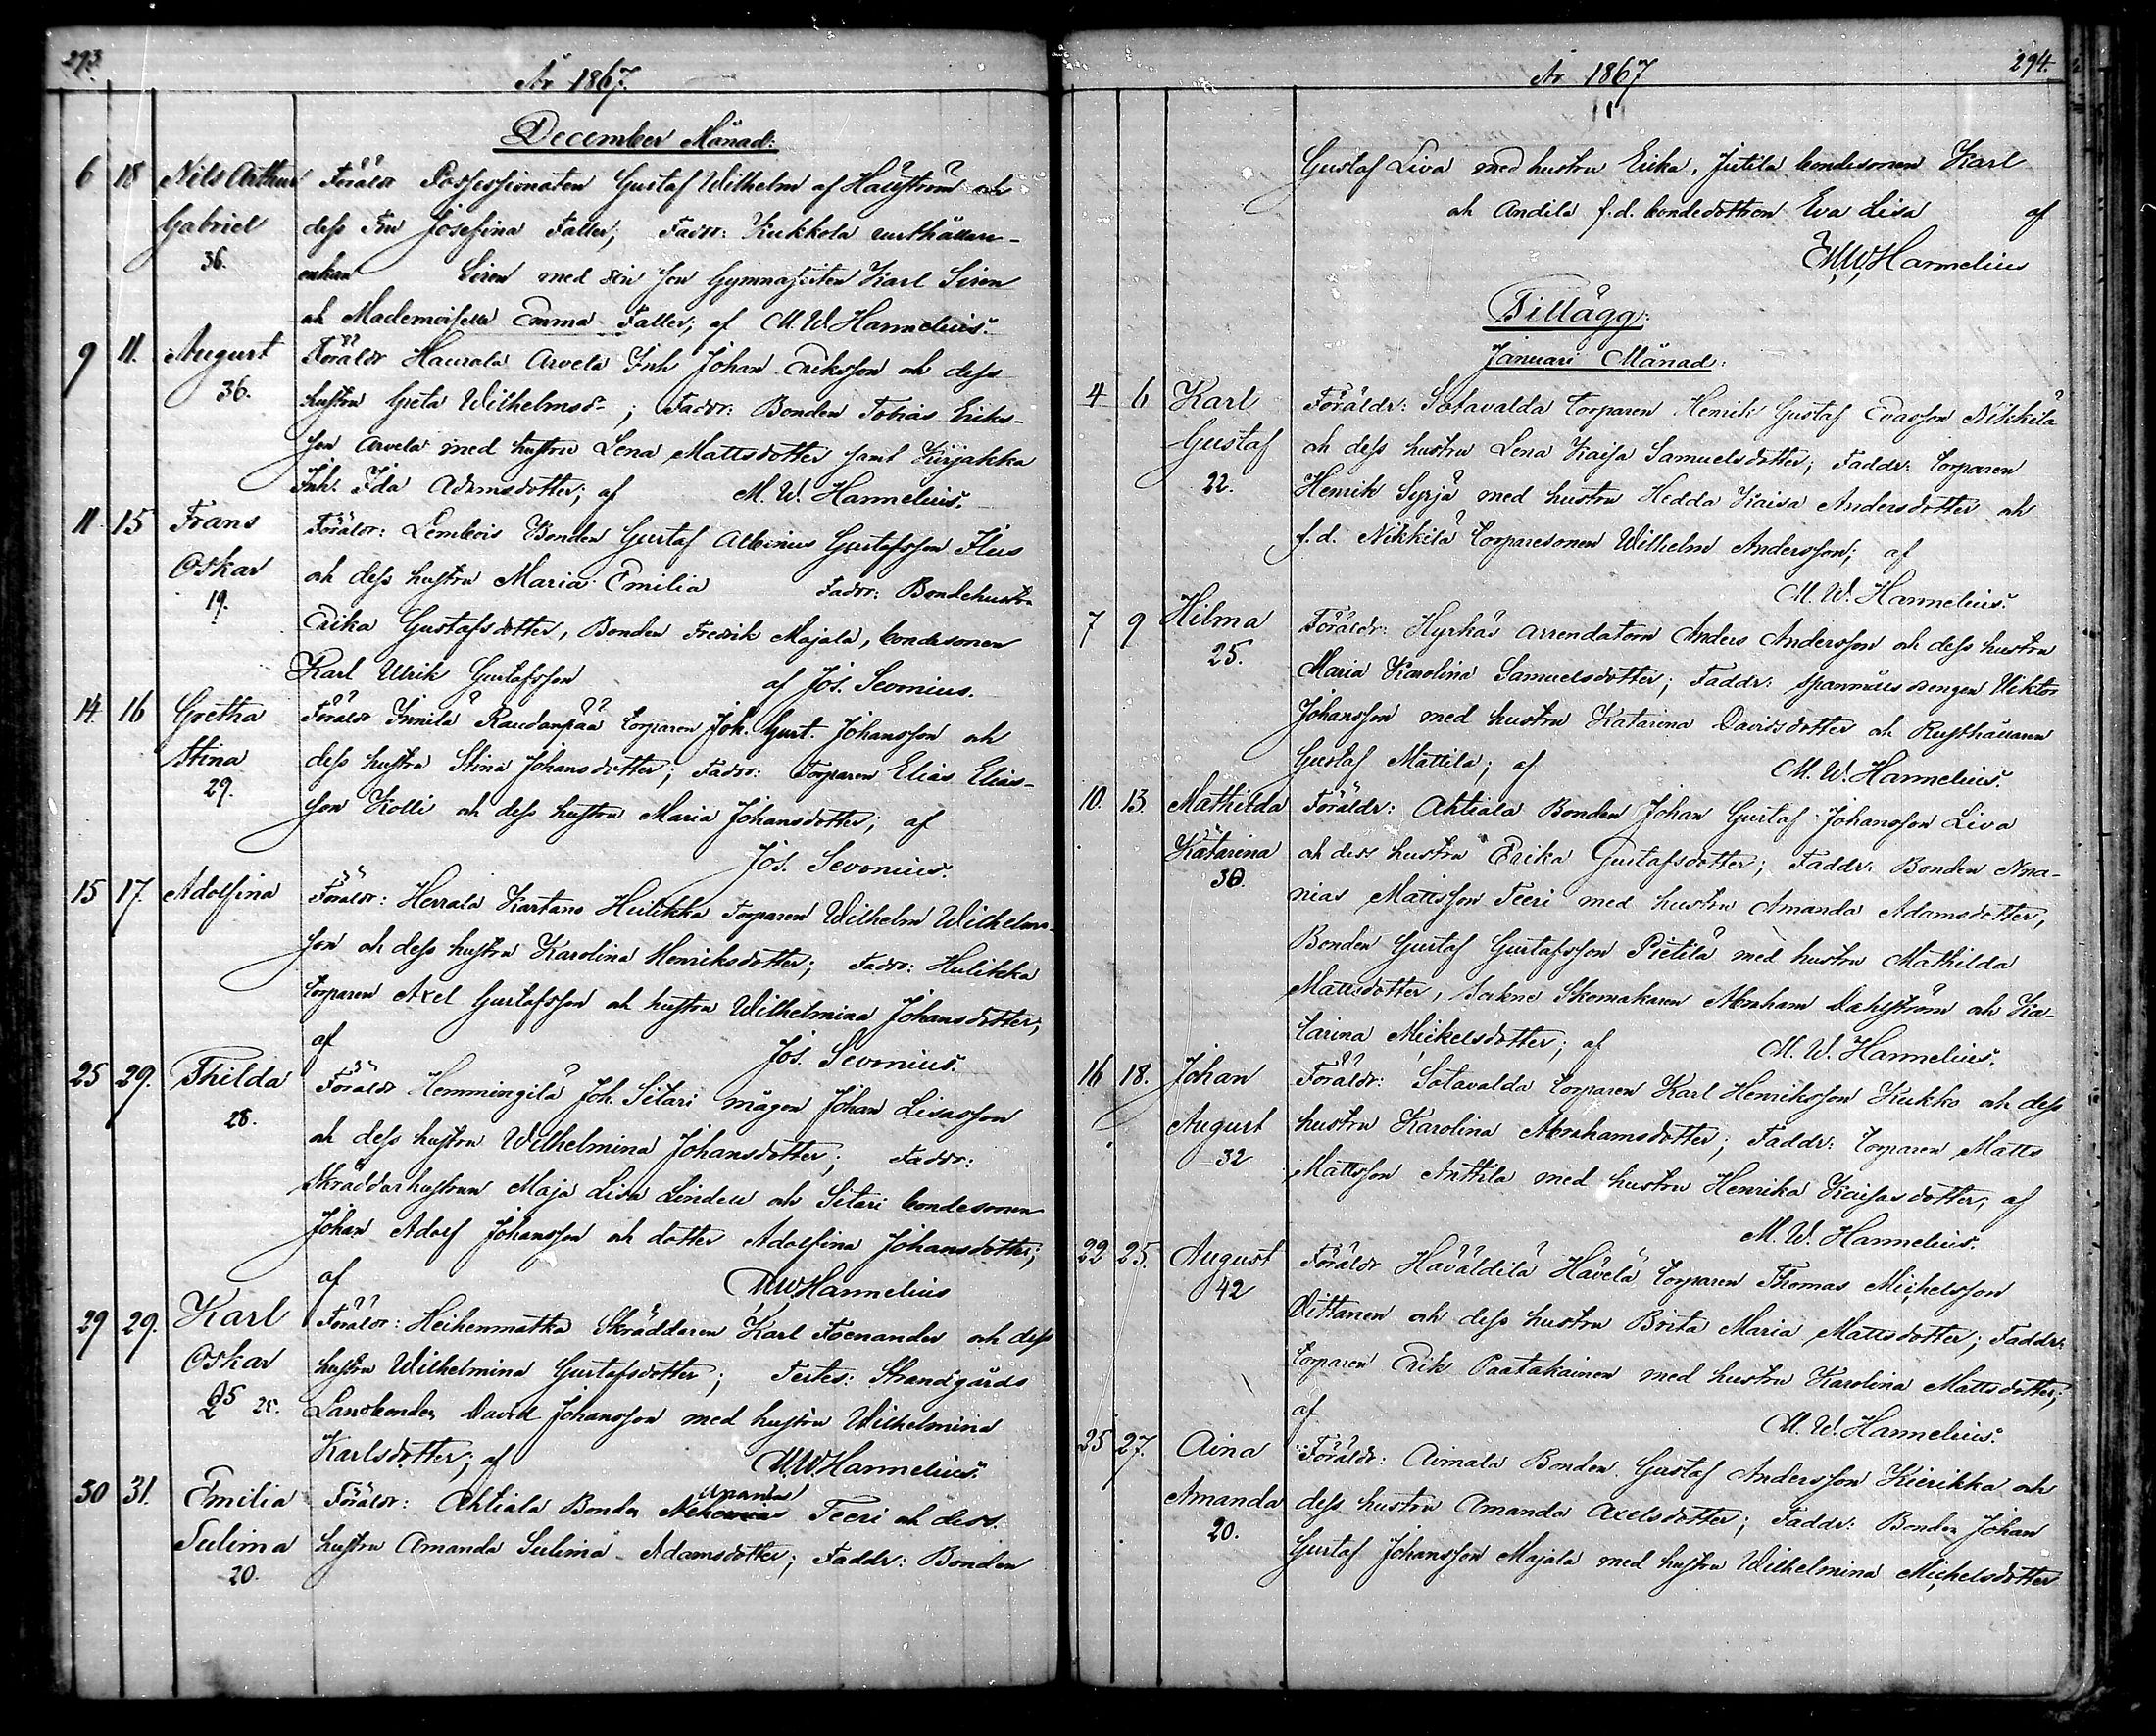 293.
År 1867.
December Månad:
6 18 Nils Arthur Föräldr Possessionaten Gustaf Wilhelm af Hällström och
Gabriel dess Fru Josefina Faller; Faddr: Kukkola rusthållare-
36. enkan Siren med sin son Gymnasisten Karl Siren
och Mademoiselle Emma Faller; af M. W. Hannelius.
9 11. August Föräldr Haurala Arvela Inh Johan Eriksson och dess
36. hustru Greta Wilhelmsd; Faddr: Bonden Tobias Eriks-
son Arvela med hustru Lena Mattsdotter samt Kirjakka
Inh. Ida Adamsdotter; af M. W. Hannelius.
11 15 Frans Föräldr: Lembois Bonden Gustaf Albinus Gustafsson Flus
Oskar och dess hustru Maria Emilia Faddr: Bondehustr
19. Erika Gustafsdotter, Bonden Fredrik Majala, bondesonen
Karl Ulrik Gustafsson af Jos. Sevonius.
14. 16 Gretha Föräldr Innilä Raudanpää torparen Joh. Gust. Johansson och
Stina dess hustru Stina Johansdotter; Faddr: Torparen Elias Elias-
29. son Kolli och dess hustru Maria Johansdotter; af
Jos. Sevonius.
15 17. Adolfina Föräldr: Herrala Kartano Heilikka Torparen Wilhelm Wilhelms-
son och dess hustru Karolina Henriksdotter; Faddr: Hulikka
torparen Axel Gustafsson och hustru Wilhelmina Johansdotter;
af Jos. Sevonius.
25 29. Thilda Föräldr Hemmingilä Joh. Sitari mågen Johan Lisasson
28. och dess hustru Wilhelmina Johansdotter; Faddr:
Skräddarhustrun Maja Lisa Lindell och Sitari bondesonen
Johan Adolf Johansson och dotter Adolfina Johansdotter;
af M.W. Hannelius
29 29. Karl Föräldr: Heikenmatka Skräddaren Karl Foenander och dess
Oskar hustru Wilhelmina Gustafsdotter; Testes: Strandgårds
25. Landbonden David Johansson med hustru Wilhelmina
Karlsdotter; af M.W. Hannelius.
30 31. Emilia Föräldr: Ahtiala Bonden Ananias Teeri och dess.
Sulima hustru Amanda Sulima Adamsdotter; Faddr: Bonden
20.
År 1867
294.
Gustaf Liva med hustru Erika, Jutila bondesonen Karl
och Andila f.d. bondedottren Eva Lisa af
M.W. Hannelius
Tillägg:
Januari Månad:
4 6 Karl Föräldr: Satavalda torparen Henrik Gustaf Evasson Nikkilä
Gustaf och dess hustru Lena Kaisa Samuelsdotter; Faddr: torparen
22. Henrik Syrjä med hustru Hedda Kaisa Andersdotter och
f.d. Nikkilä torparesonen Wilhelm Andersson; af
M. W. Hannelius.
7 9 Hilma Föräldr: Hyrkäs arrendatorn Anders Andersson och dess hustru
25. Maria Karolina Samuelsdotter; Faddr: spannmåls drengen Viktor
Johansson med hustru Katarina Davidsdotter och Rusthållaren
Gustaf Mattila; af M. W. Hannelius.
10. 13. Mathilda Föräldr: Ahtiala Bonden Johan Gustaf Johansson Liva
Katarina och dess hustru Erika Gustafsdotter; Faddr: Bonden Ana-
30. nias Mattsson Teeri med hustru Amanda Adamsdotter,
Bonden Gustaf Gustafsson Pietilä med hustru Mathilda
Mattsdotter, Sockne Skomakaren Abraham Dahlström och Ka-
tarina Mickelsdotter; af M. W. Hannelius.
16 18. Johan Föräldr: Satavalda torparen Karl Henriksson Kukko och dess
August hustru Karolina Abrahamsdotter; Faddr: torparen Matts
32 Mattsson Anttila med hustru Henrika Kaisasdotter; af
M. W. Hannelius.
22 25. August Föräldr Häväldilä Hävelä torparen Thomas Michelsson
42 Vittanen och dess hustru Brita Maria Mattsdotter; Faddr:
torparen Erik Paatakainen med hustru Karolina Mattsdotter;
af M. W. Hannelius.
25 27. Aina Föräldr: Aimala Bonden Gustaf Andersson Kierikka och
Amanda dess hustru Amanda Axelsdotter; Faddr: Bonden Johan
20. Gustaf Johansson Majala med hustru Wilhelmina Michelsdotter